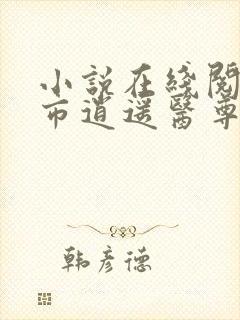 小説在綫閱
市逍遥醫尊
韩彦德